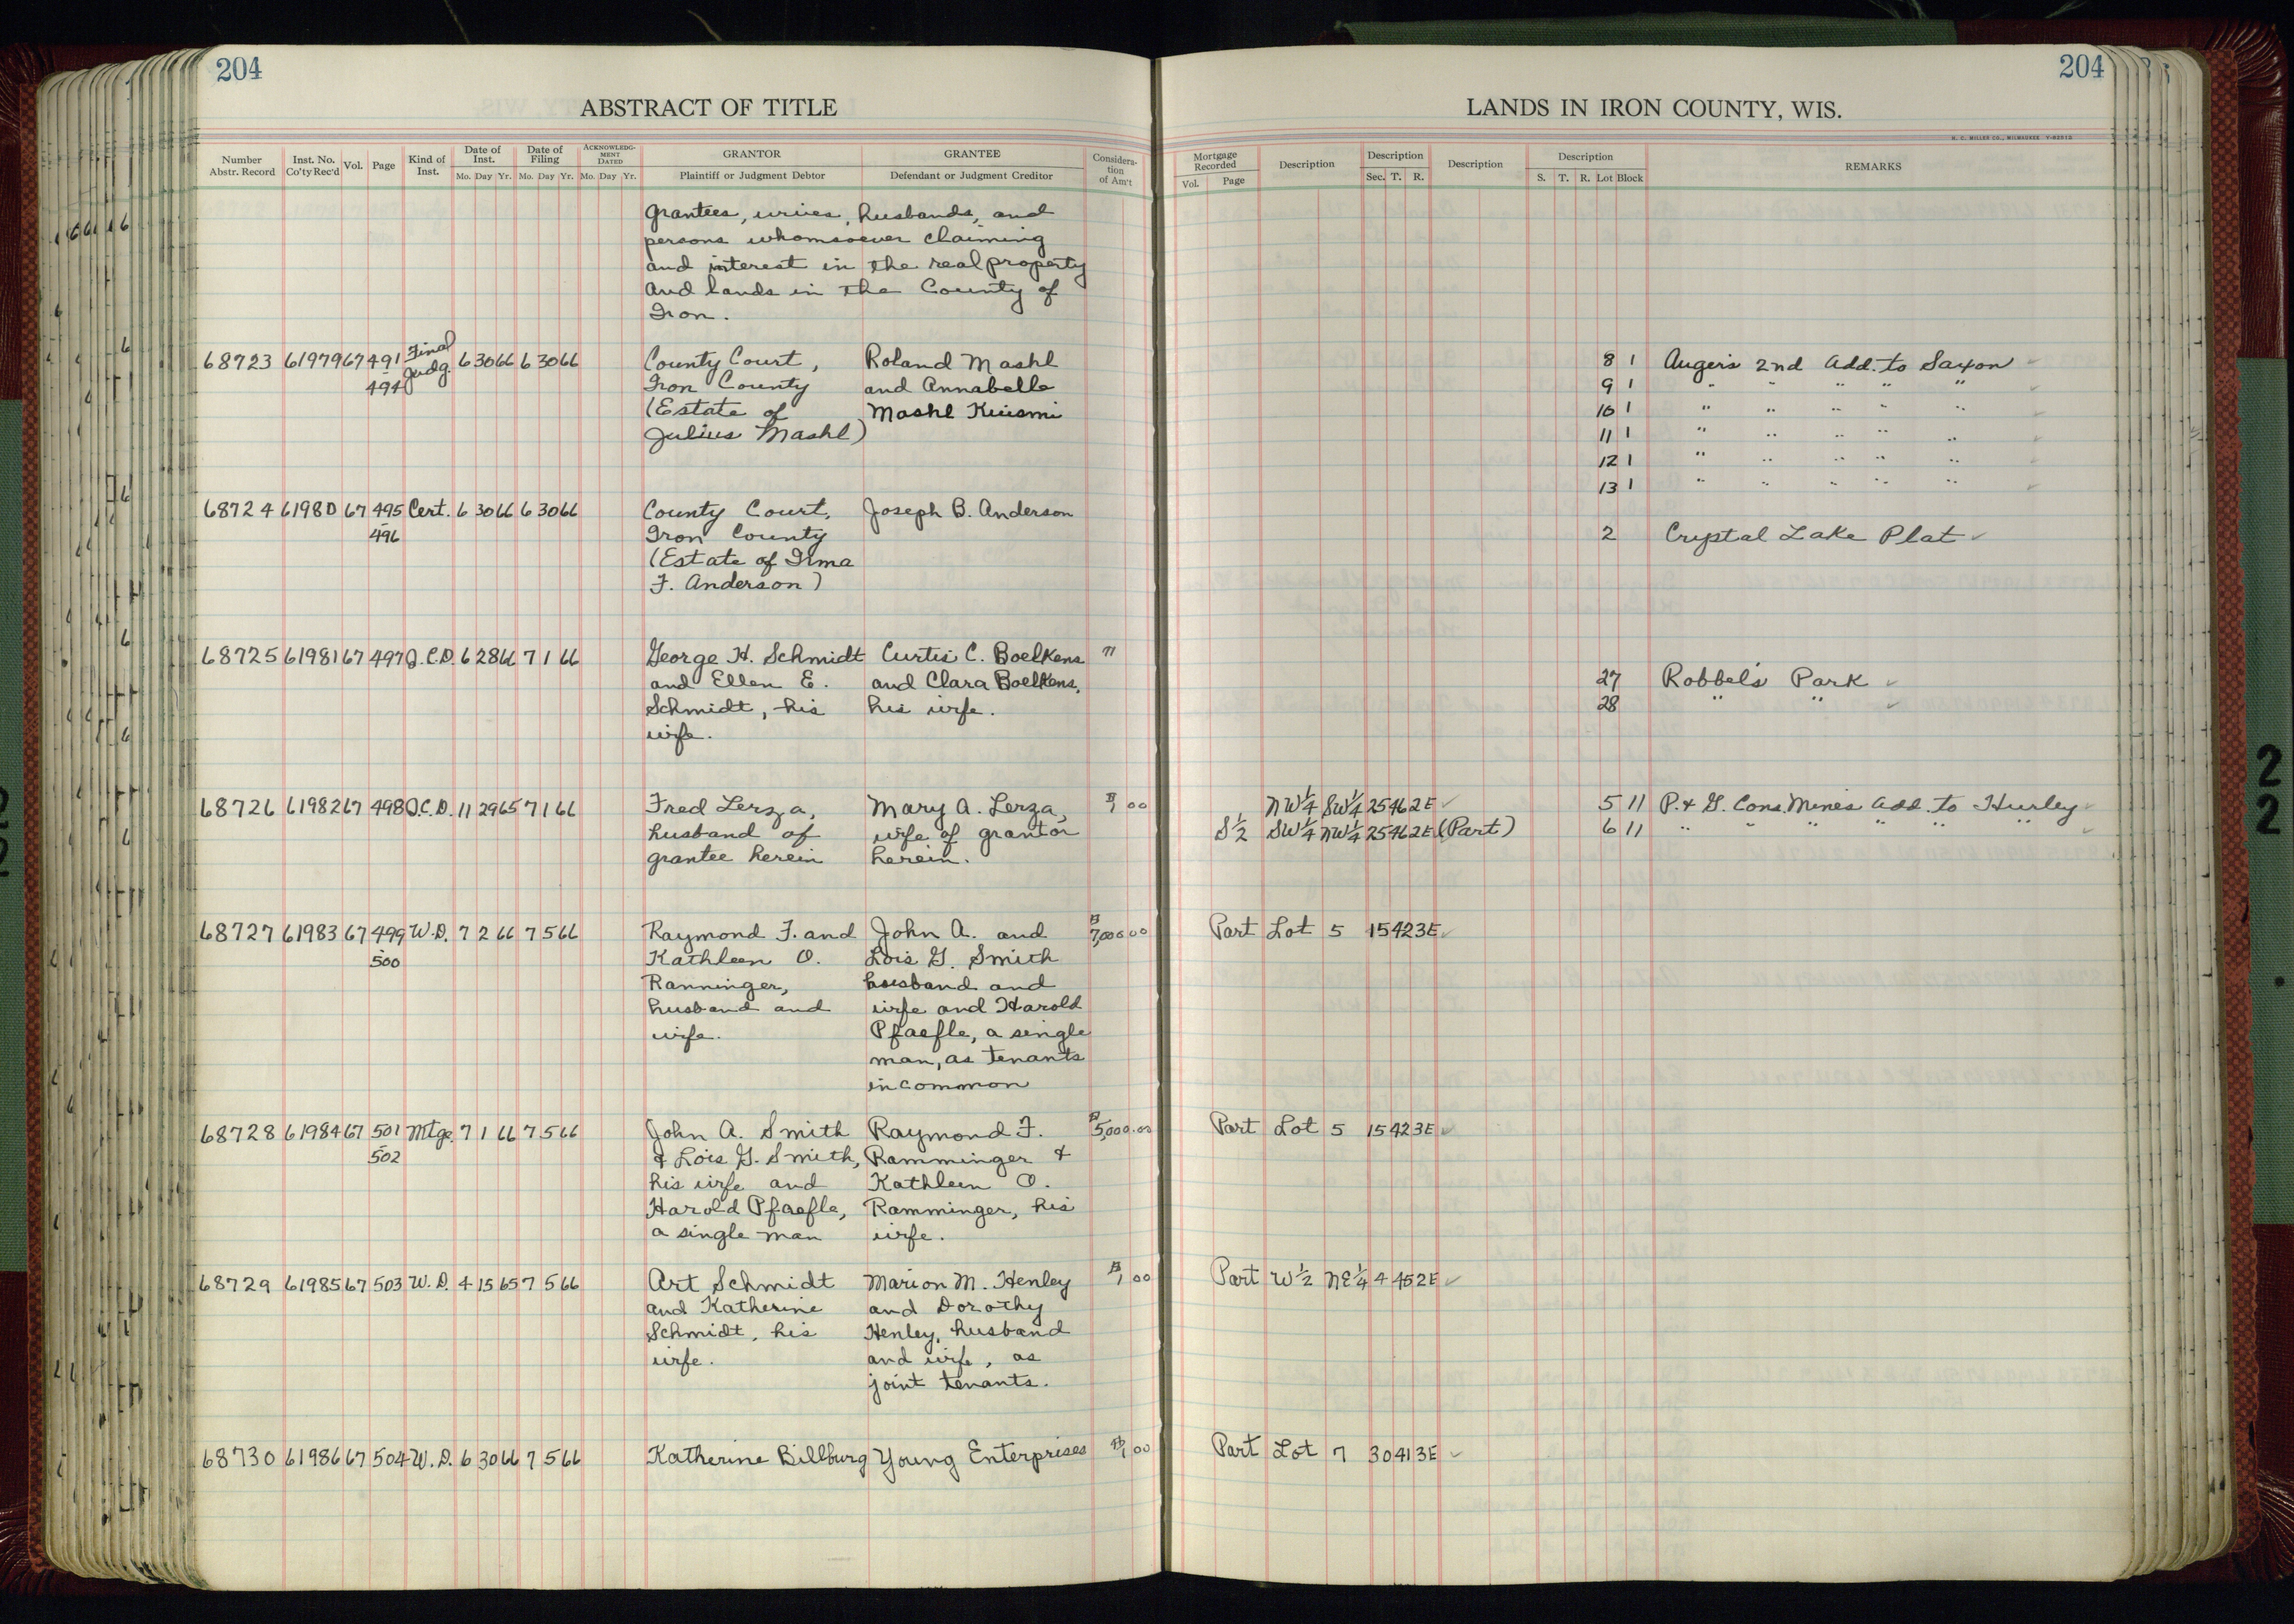 204
ABSTRACT OF TITLE
Number Abstr. Record Inst. No. Co'ty Rec'd Vol. Page Kind of Inst. Date of Inst. Mo. Day Yr. Date of Filing Mo. Day Yr. ACKNOWLEDGMENT DATED Mo. Day Yr. GRANTOR Plaintiff or Judgment Debtor GRANTEE Defendant or Judgment Creditor Consideration of Am't
grantees, wives, husbands, and
persons whomsoever claiming
and interest in the real property
and lands in the County of
Iron.
68723 61979 67 491 Final Judg. 6 30 66 6 30 66 County Court, Roland Mashl
494 Iron County and Annabelle
(Estate of Mashl Kuismi
Julius Mashl)
68724 61980 67 495 Cert. 6 30 66 6 30 66 County Court, Joseph B. Anderson
496 Iron County
(Estate of Irma
F. Anderson)
68725 61981 67 497 Q.C.D. 6 28 66 7 1 66 George H. Schmidt Curtis C. Boelkens "
and Ellen E. and Clara Boelkens,
Schmidt, his his wife.
wife.
68726 61982 67 498 Q.C.D. 11 29 65 7 1 66 Fred Lerza, Mary A. Lerza, $1 00
husband of wife of grantor
grantee herein herein.
68727 61983 67 499 W.D. 7 2 66 7 5 66 Raymond F. and John A. and $7,000 00
500 Kathleen O. Lois G. Smith
Ranninger, husband and
husband and wife and Harold
wife. Pfaefle, a single
man, as tenants
in common
68728 61984 67 501 Mtge. 7 1 66 7 5 66 John A. Smith Raymond F. $5,000.00
502 & Lois G. Smith, Ramminger &
his wife and Kathleen O.
Harold Pfaefle, Ramminger, his
a single man wife.
68729 61985 67 503 W.D. 4 15 65 7 5 66 Art Schmidt Marion M. Henley $1 00
and Katherine and Dorothy
Schmidt, his Henley, husband
wife. and wife, as
joint tenants.
68730 61986 67 504 W.D. 6 30 66 7 5 66 Katherine Billburg Young Enterprises $1 00
204
LANDS IN IRON COUNTY, WIS.
H. C. MILLER CO., MILWAUKEE
Mortgage Recorded Vol. Page Description Description Sec. T. R. Description Description S. T. R. Lot Block REMARKS
8 1 Auger's 2nd Add. to Saxon
9 1 " " " " "
10 1 " " " " "
11 1 " " " " "
12 1 " " " " "
13 1 " " " " "
2 Crystal Lake Plat
27 Robbel's Park
28 " "
NW¼ SW¼ 25 46 2E 5 11 P. & G. Cons. Mines Add. to Hurley
S½ SW¼ NW¼ 25 46 2E (Part) 6 11 " " " " " "
Part Lot 5 15 42 3E
Part Lot 5 15 42 3E
Part W½ NE¼ 4 45 2E
Part Lot 7 30 41 3E
2
2